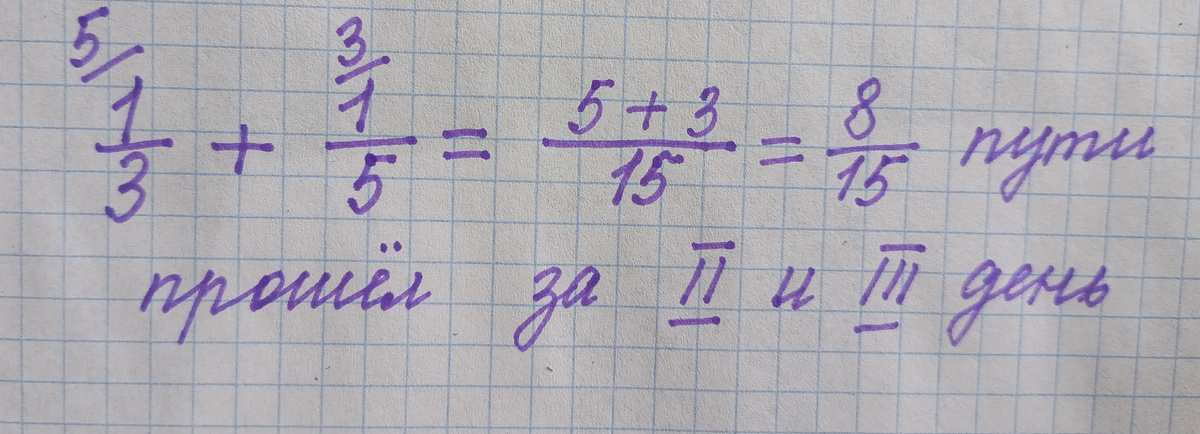 5/ 1/3 + 3/ 1/5 = 5 + 3/15 = 8/15 пути
прошёл за II и III день